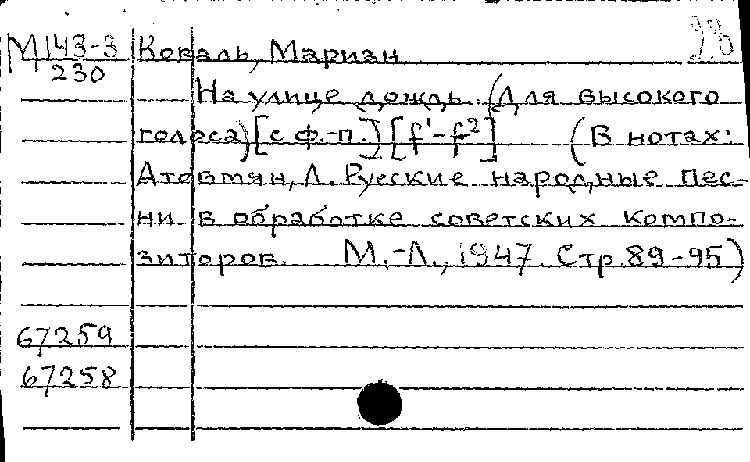 М143-3 Коваль, Мариан
230
На улице дождь. (Для высокого
голоса) [с ф.-п.] [f¹-f²] (В нотах:
Атовтмян, Л. Русские народные пес-
ни в обработке советских компо-
зиторов. М.-Л., 1947. Стр. 89-95)
67259
67258